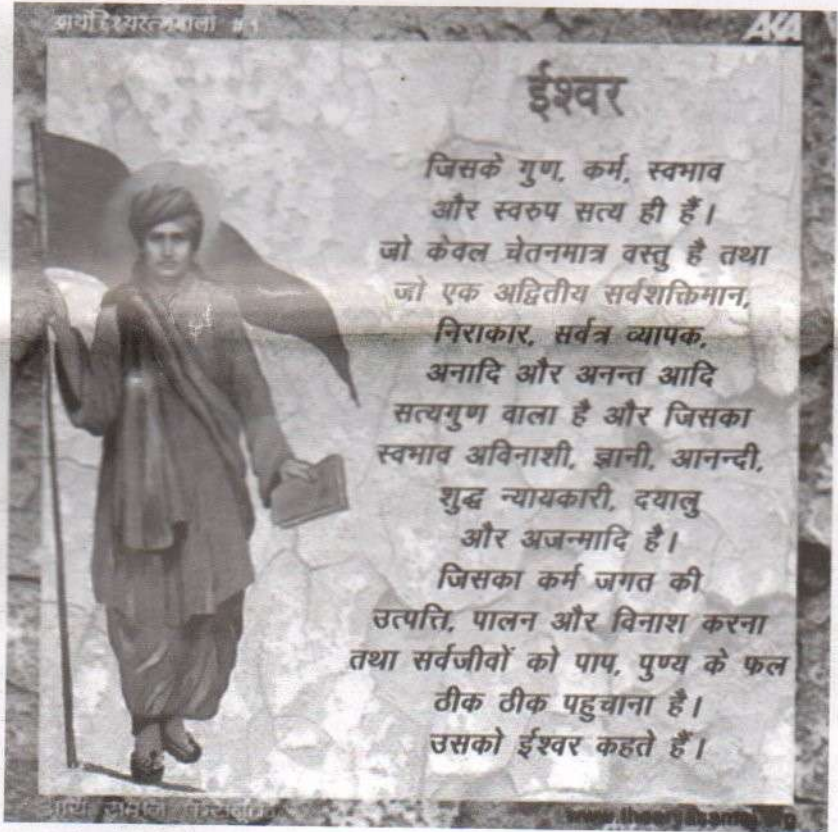 आर्योद्देश्यरत्नमाला #१
AKA
ईश्वर
जिसके गुण, कर्म, स्वभाव
और स्वरुप सत्य ही हैं।
जो केवल चेतनमात्र वस्तु है तथा
जो एक अद्वितीय सर्वशक्तिमान,
निराकार, सर्वत्र व्यापक,
अनादि और अनन्त आदि
सत्यगुण वाला है और जिसका
स्वभाव अविनाशी, ज्ञानी, आनन्दी,
शुद्ध न्यायकारी, दयालु
और अजन्मादि है।
जिसका कर्म जगत की
उत्पत्ति, पालन और विनाश करना
तथा सर्वजीवों को पाप, पुण्य के फल
ठीक ठीक पहुचाना है।
उसको ईश्वर कहते हैं।
आर्य समाज